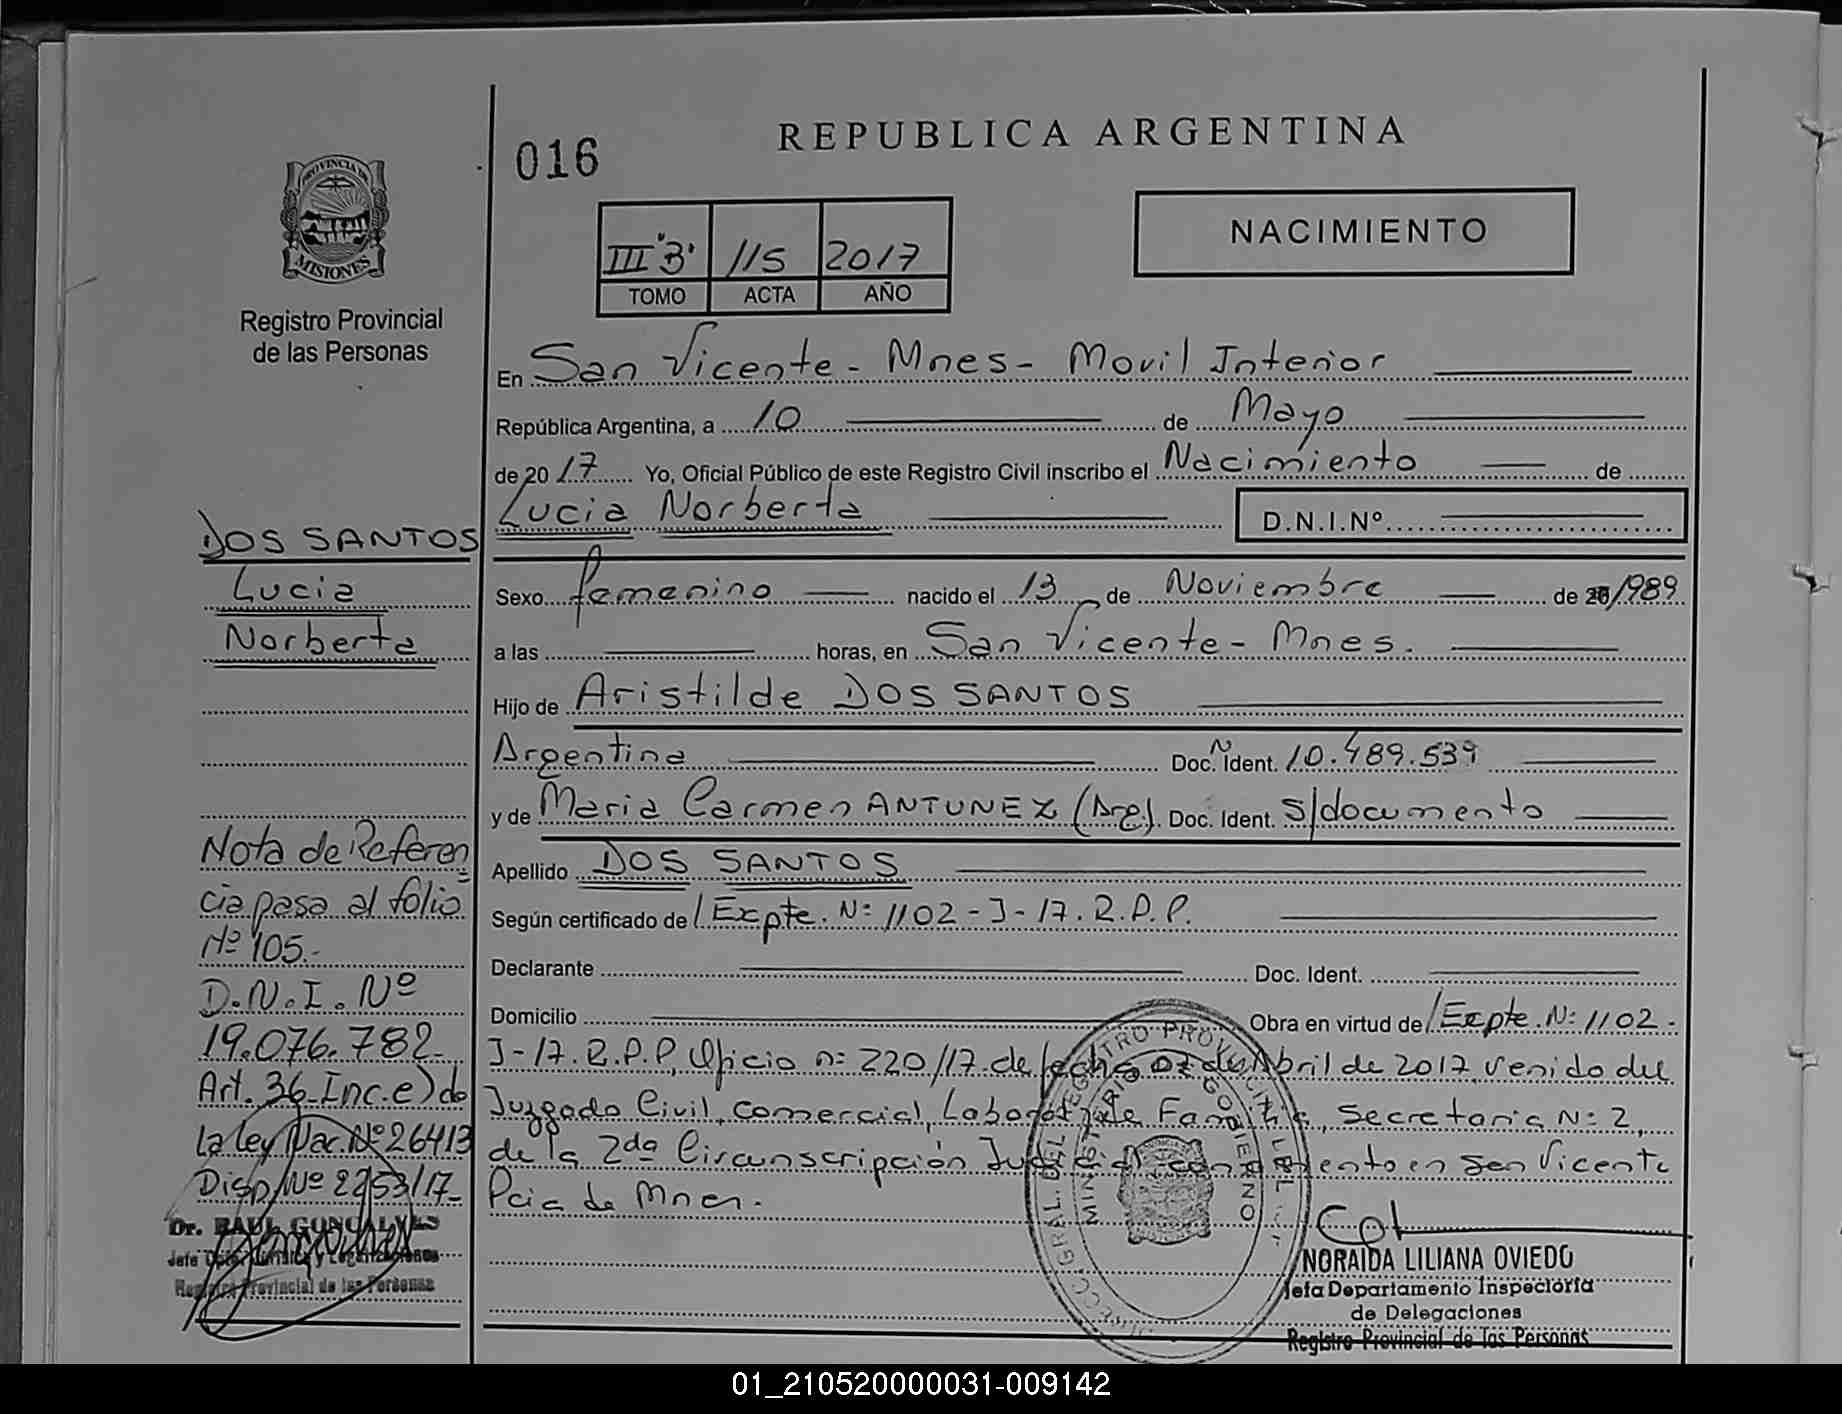 016
REPUBLICA ARGENTINA
PROVINCIA DE
MISIONES
Registro Provincial
de las Personas
III "B" 115 2017
TOMO ACTA AÑO
NACIMIENTO
En San Vicente - Mnes - Movil Interior
República Argentina, a 10 de Mayo
de 2017 Yo, Oficial Público de este Registro Civil inscribo el Nacimiento de
Lucia Norberta D.N.I.Nº
Sexo femenino nacido el 13 de Noviembre de 1989
a las horas, en San Vicente - Mnes.
Hijo de Aristilde DOS SANTOS
Argentina Doc. Ident. Nº 10.489.539
y de Maria Carmen ANTUNEZ (Arg). Doc. Ident. s/documento
Apellido DOS SANTOS
Según certificado de Expte. Nº 1102-J-17. R.P.P.
Declarante Doc. Ident.
Domicilio Obra en virtud de Expte. Nº 1102-
J-17. R.P.P, Oficio nº 220/17 de fecha de Abril de 2017 venido del
Juzgado Civil, comercial, Laboral y de Familia, Secretaria Nº 2,
de la 2da Circunscripción Judicial con en San Vicente
Pcia de Mnes.
DOS SANTOS
Lucia
Norberta
Nota de Referen
cia pasa al folio
Nº 105.-
D.N.I. Nº
19.076.782-
Art. 36-Inc.e) de
la Ley Nac. Nº 26413
Disp Nº 2253/17-
Dr. RAUL GONCALVES
Registro Provincial de las Personas
REGISTRO PROVINCIAL
MINISTERIO GOBIERNO
NORAIDA LILIANA OVIEDO
Jefa Departamento Inspectoría
de Delegaciones
Registro Provincial de las Personas
01_210520000031-009142